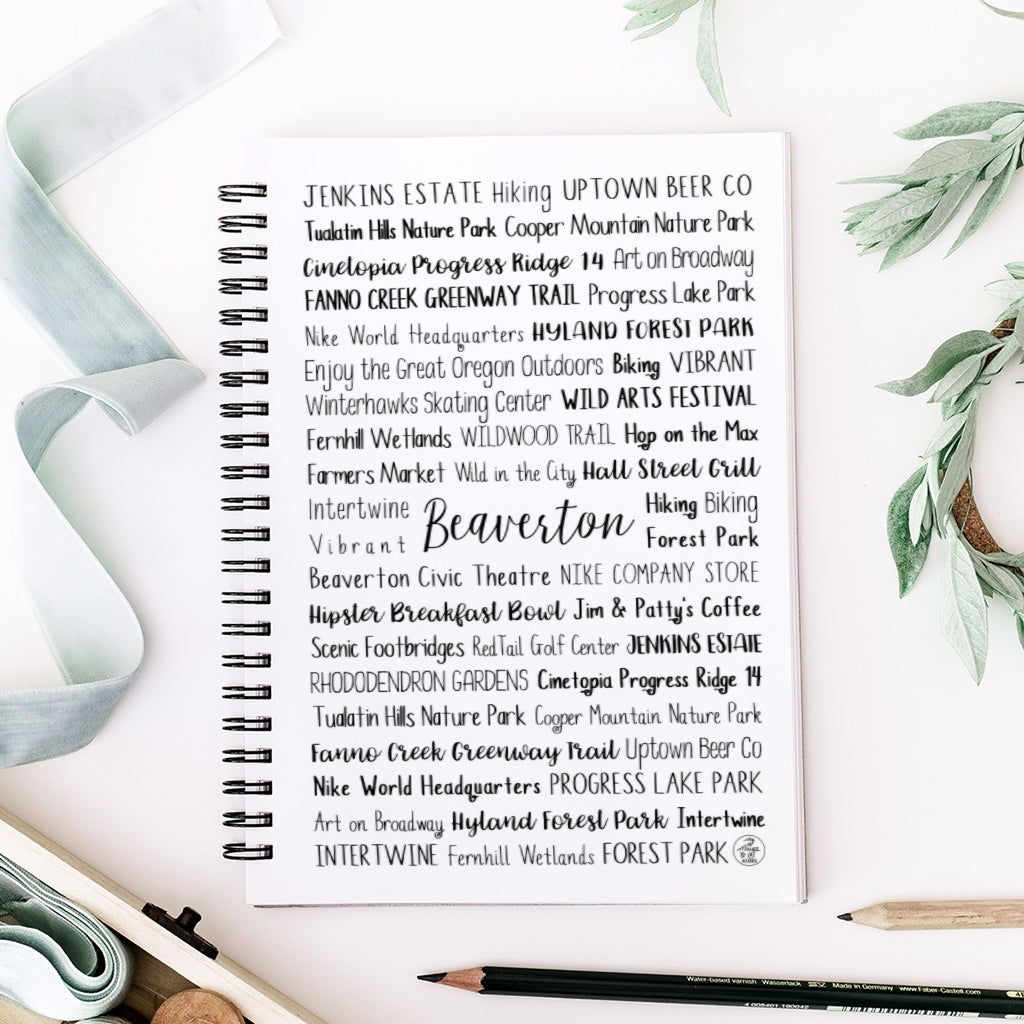 JENKINS ESTATE Hiking UPTOWN BEER CO
Tualatin Hills Nature Park Cooper Mountain Nature Park
Cinetopia Progress Ridge 14 Art on Broadway
FANNO CREEK GREENWAY TRAIL Progress Lake Park
Nike World Headquarters HYLAND FOREST PARK
Enjoy the Great Oregon Outdoors Biking VIBRANT
Winterhawks Skating Center WILD ARTS FESTIVAL
Fernhill Wetlands WILDWOOD TRAIL Hop on the Max
Farmers Market Wild in the City Hall Street Grill
Intertwine
Vibrant
Beaverton
Hiking Biking
Forest Park
Beaverton Civic Theatre NIKE COMPANY STORE
Hipster Breakfast Bowl Jim & Patty's Coffee
Scenic Footbridges RedTail Golf Center JENKINS ESTATE
RHODODENDRON GARDENS Cinetopia Progress Ridge 14
Tualatin Hills Nature Park Cooper Mountain Nature Park
Fanno Creek Greenway Trail Uptown Beer Co
Nike World Headquarters PROGRESS LAKE PARK
Art on Broadway Hyland Forest Park Intertwine
INTERTWINE Fernhill Wetlands FOREST PARK
Water-based varnish Wasserlack Made in Germany www.Faber-Castell.com
4 005401 190042